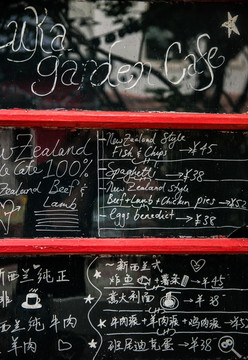 uKa
garden Cafe
w Zealand
100%
Zealand Beef &
Lamb
New Zealand Style
Fish & Chips → ¥45
Spaghetti → ¥38
New Zealand Style
Beef+Lamb+Chicken pies → ¥52
eggs benedict → ¥38
新西兰纯正
啡
西兰 纯 牛肉
羊肉
~新西兰式
炸鱼 + 薯条 → ¥45
意大利面 → ¥38
牛肉派+羊肉派+鸡肉派 → ¥52
班尼迪克蛋 → ¥38